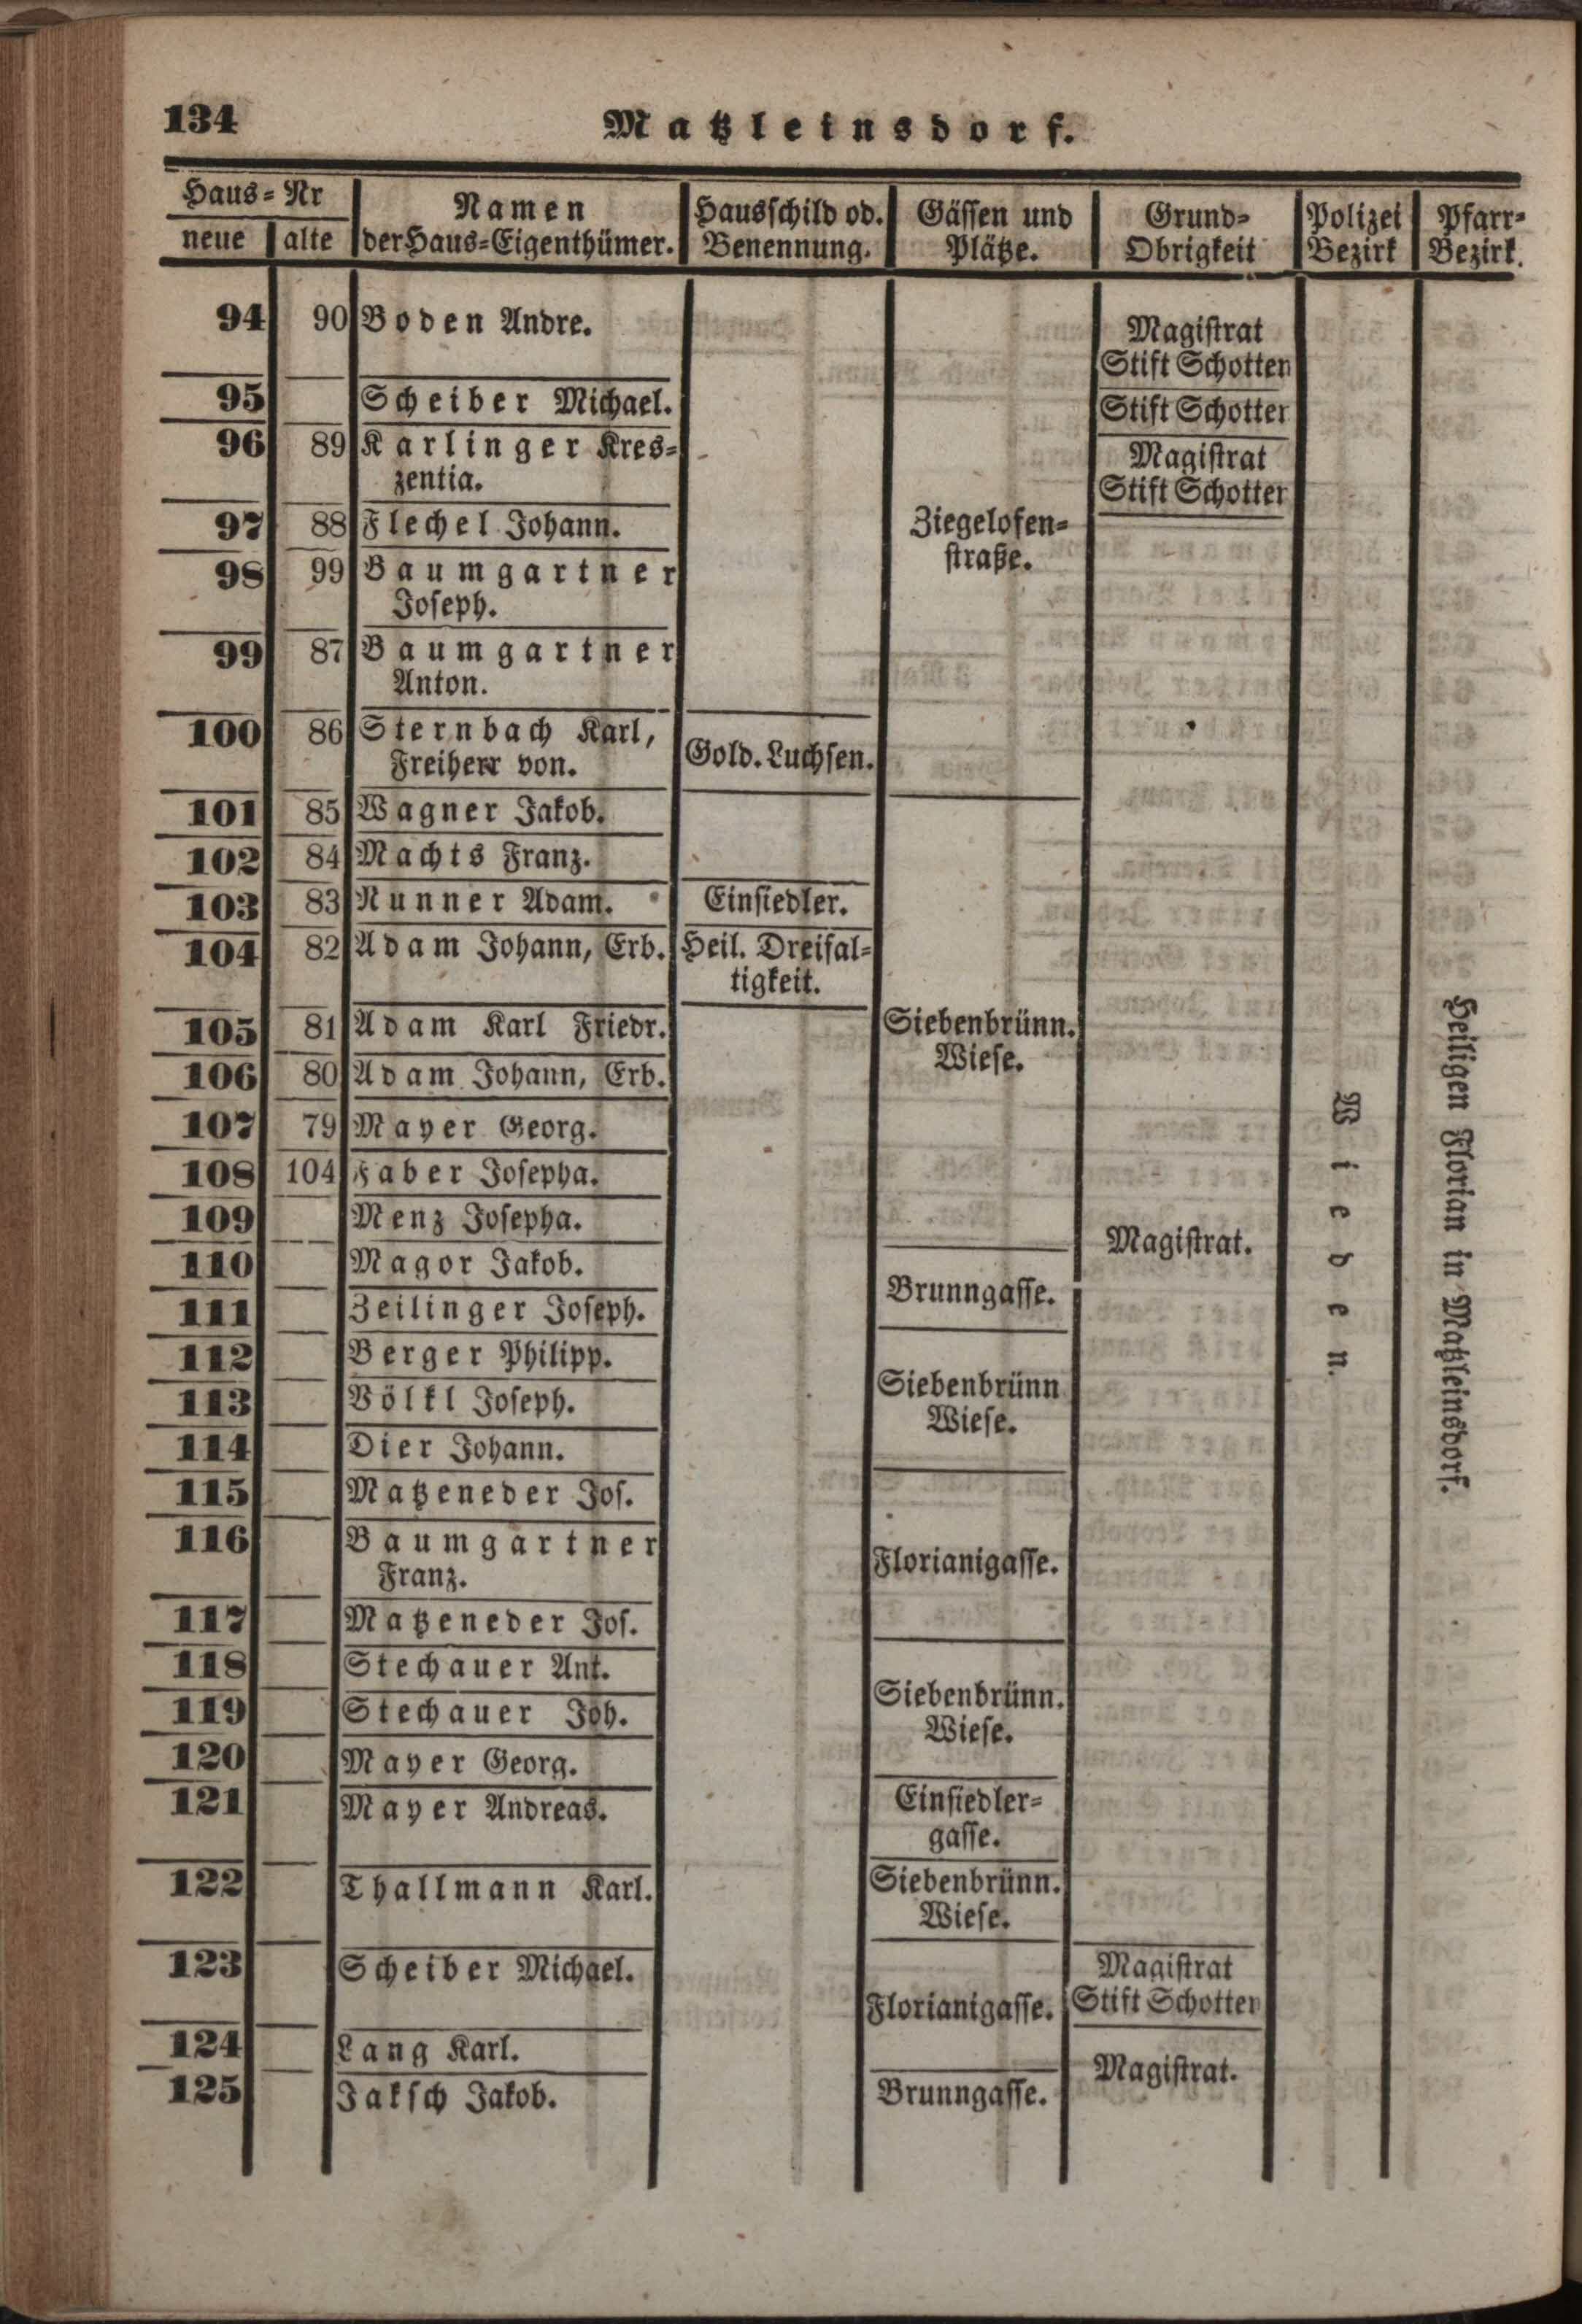 134
Matzleinsdorf.
Haus-Nr
neue alte
Namen
der Haus-Eigenthümer.
Hausschild od.
Benennung.
Gässen und
Plätze.
Grund-
Obrigkeit
Polizei
Bezirk
Pfarr-
Bezirk.
94 90 Boden Andre. Magistrat
Stift Schotten
95 Scheiber Michael. Stift Schotter
96 89 Karlinger Kres- Magistrat
zentia. Stift Schotter
97 88 Flechel Johann. Ziegelofen-
straße.
98 99 Baumgartner
Joseph.
99 87 Baumgartner
Anton.
100 86 Sternbach Karl, Gold. Luchsen.
Freiherr von.
101 85 Wagner Jakob.
102 84 Machts Franz.
103 83 Nunner Adam. Einsiedler.
104 82 Adam Johann, Erb. Heil. Dreifal-
tigkeit.
105 81 Adam Karl Friedr. Siebenbrünn.
Wiese.
106 80 Adam Johann, Erb.
107 79 Mayer Georg.
108 104 Faber Josepha.
109 Menz Josepha. Magistrat.
110 Magor Jakob. Brunngasse.
111 Zeilinger Joseph.
112 Berger Philipp. Siebenbrünn
Wiese.
113 Völkl Joseph.
114 Dier Johann.
115 Matzeneder Jos.
116 Baumgartner Florianigasse.
Franz.
117 Matzeneder Jos.
118 Stechauer Ant. Siebenbrünn.
Wiese.
119 Stechauer Joh.
120 Mayer Georg.
121 Mayer Andreas. Einsiedler-
gasse.
122 Thallmann Karl. Siebenbrünn.
Wiese.
123 Scheiber Michael. Florianigasse. Magistrat
Stift Schotten
124 Lang Karl. Magistrat.
125 Jaksch Jakob. Brunngasse.
Wieden.
Heiligen Florian in Matzleinsdorf.